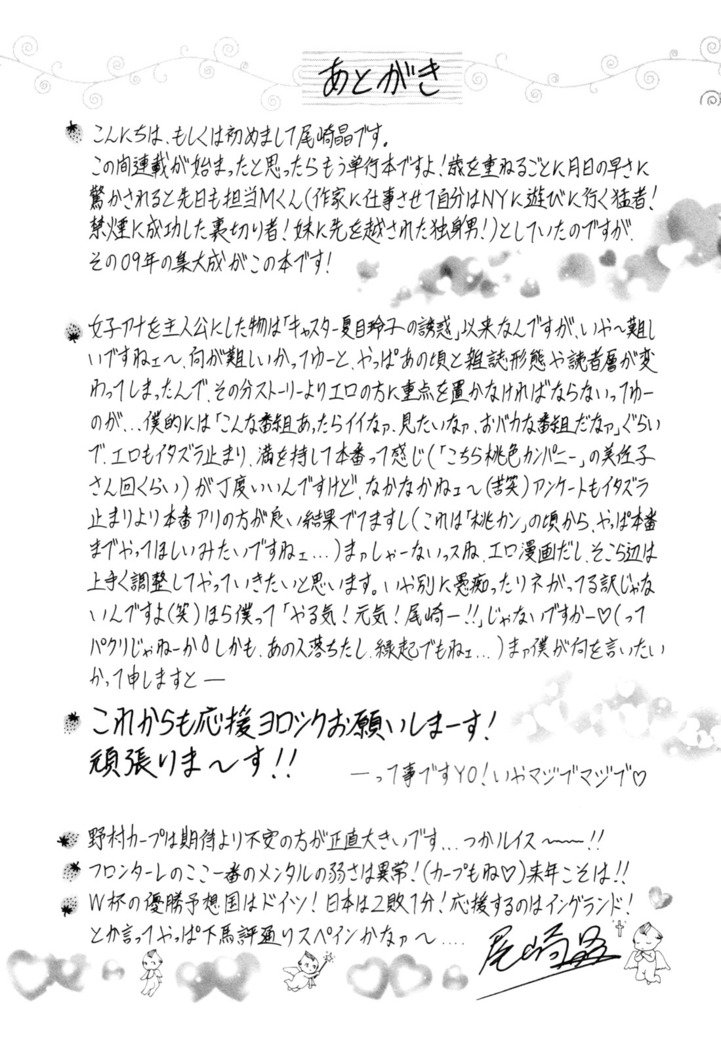 あとがき
こんにちは、もしくは初めまして尾崎晶です。
この間連載が始まったと思ったらもう単行本ですよ！歳を重ねるごとに月日の早さに
驚かされると先日も担当Mくん(作家に仕事させて自分はNYに遊びに行く猛者！
禁煙に成功した裏切り者！妹に先を越された独身男！)としていたのですが、
その09年の集大成がこの本です！
女子アナを主人公にした物は「キャスター夏目玲子の誘惑」以来なんですが、いや〜難し
いですねェ〜、何が難しいかってゆーと、やっぱあの頃と雑誌形態や読者層が変
わってしまったんで、その分ストーリーよりエロの方に重点を置かなければならないってゆー
のが...僕的には「こんな番組あったらイイなァ、見たいなァ、おバカな番組だなァ」ぐらい
で、エロもイタズラ止まり、満を持して本番って感じ(「こちら桃色カンパニー」の美佐子
さん回くらい)が丁度いいんですけど、なかなかねェ〜(苦笑)アンケートもイタズラ
止まりより本番アリの方が良い結果でてますし(これは「桃カン」の頃から、やっぱ本番
までやってほしいみたいですねェ...)まァしゃーないっスね、エロ漫画だし、そこら辺は
上手く調整してやっていきたいと思います。いや別に愚痴ったりネガってる訳じゃな
いんですよ(笑)ほら僕って「やる気！元気！尾崎ー!!」じゃないですかー♡(って
パクリじゃねーか しかも、あの人落ちたし、縁起でもねェ...)まァ僕が何を言いたい
かって申しますと―
これからも応援ヨロシクお願いしまーす！
頑張りま〜す!!
―って事ですYO！いやマジでマジで♡
野村カープは期待より不安の方が正直大きいです...つかルイス〜!!
フロンターレのここ一番のメンタルの弱さは異常！(カープもね♡)来年こそは!!
W杯の優勝予想国はドイツ！日本は2敗1分！応援するのはイングランド！
とか言ってやっぱ下馬評通りスペインかなァ〜....
尾崎晶